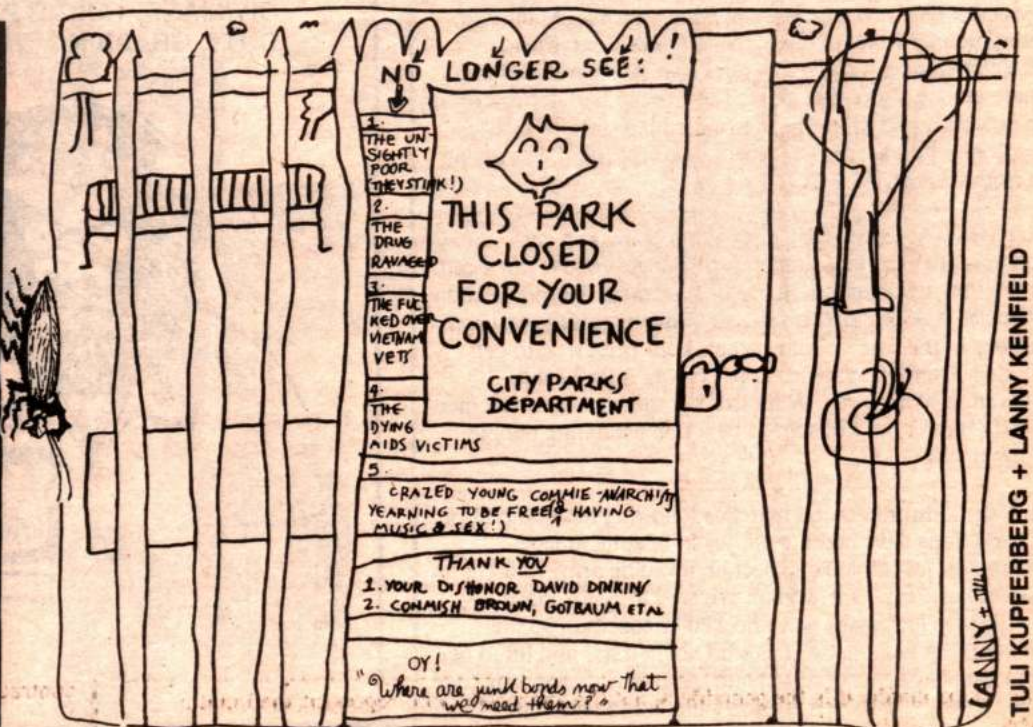 NO LONGER SEE:
1.
THE UN-
SIGHTLY
POOR
(THEY STINK!)
2.
THE
DRUG
RAVAGED
3.
THE FUC
KED OVER
VIETNAM
VETS
4.
THE
DYING
AIDS VICTIMS
5.
CRAZED YOUNG COMMIE-ANARCHISTS
YEARNING TO BE FREE (& HAVING
MUSIC & SEX!)
THIS PARK
CLOSED
FOR YOUR
CONVENIENCE
CITY PARKS
DEPARTMENT
THANK YOU
1. YOUR DISHONOR DAVID DINKINS
2. COMMISH BROWN, GOTBAUM ET AL
OY!
"Where are junk bonds now that
we need them?"
LANNY + TULI
TULI KUPFERBERG + LANNY KENFIELD